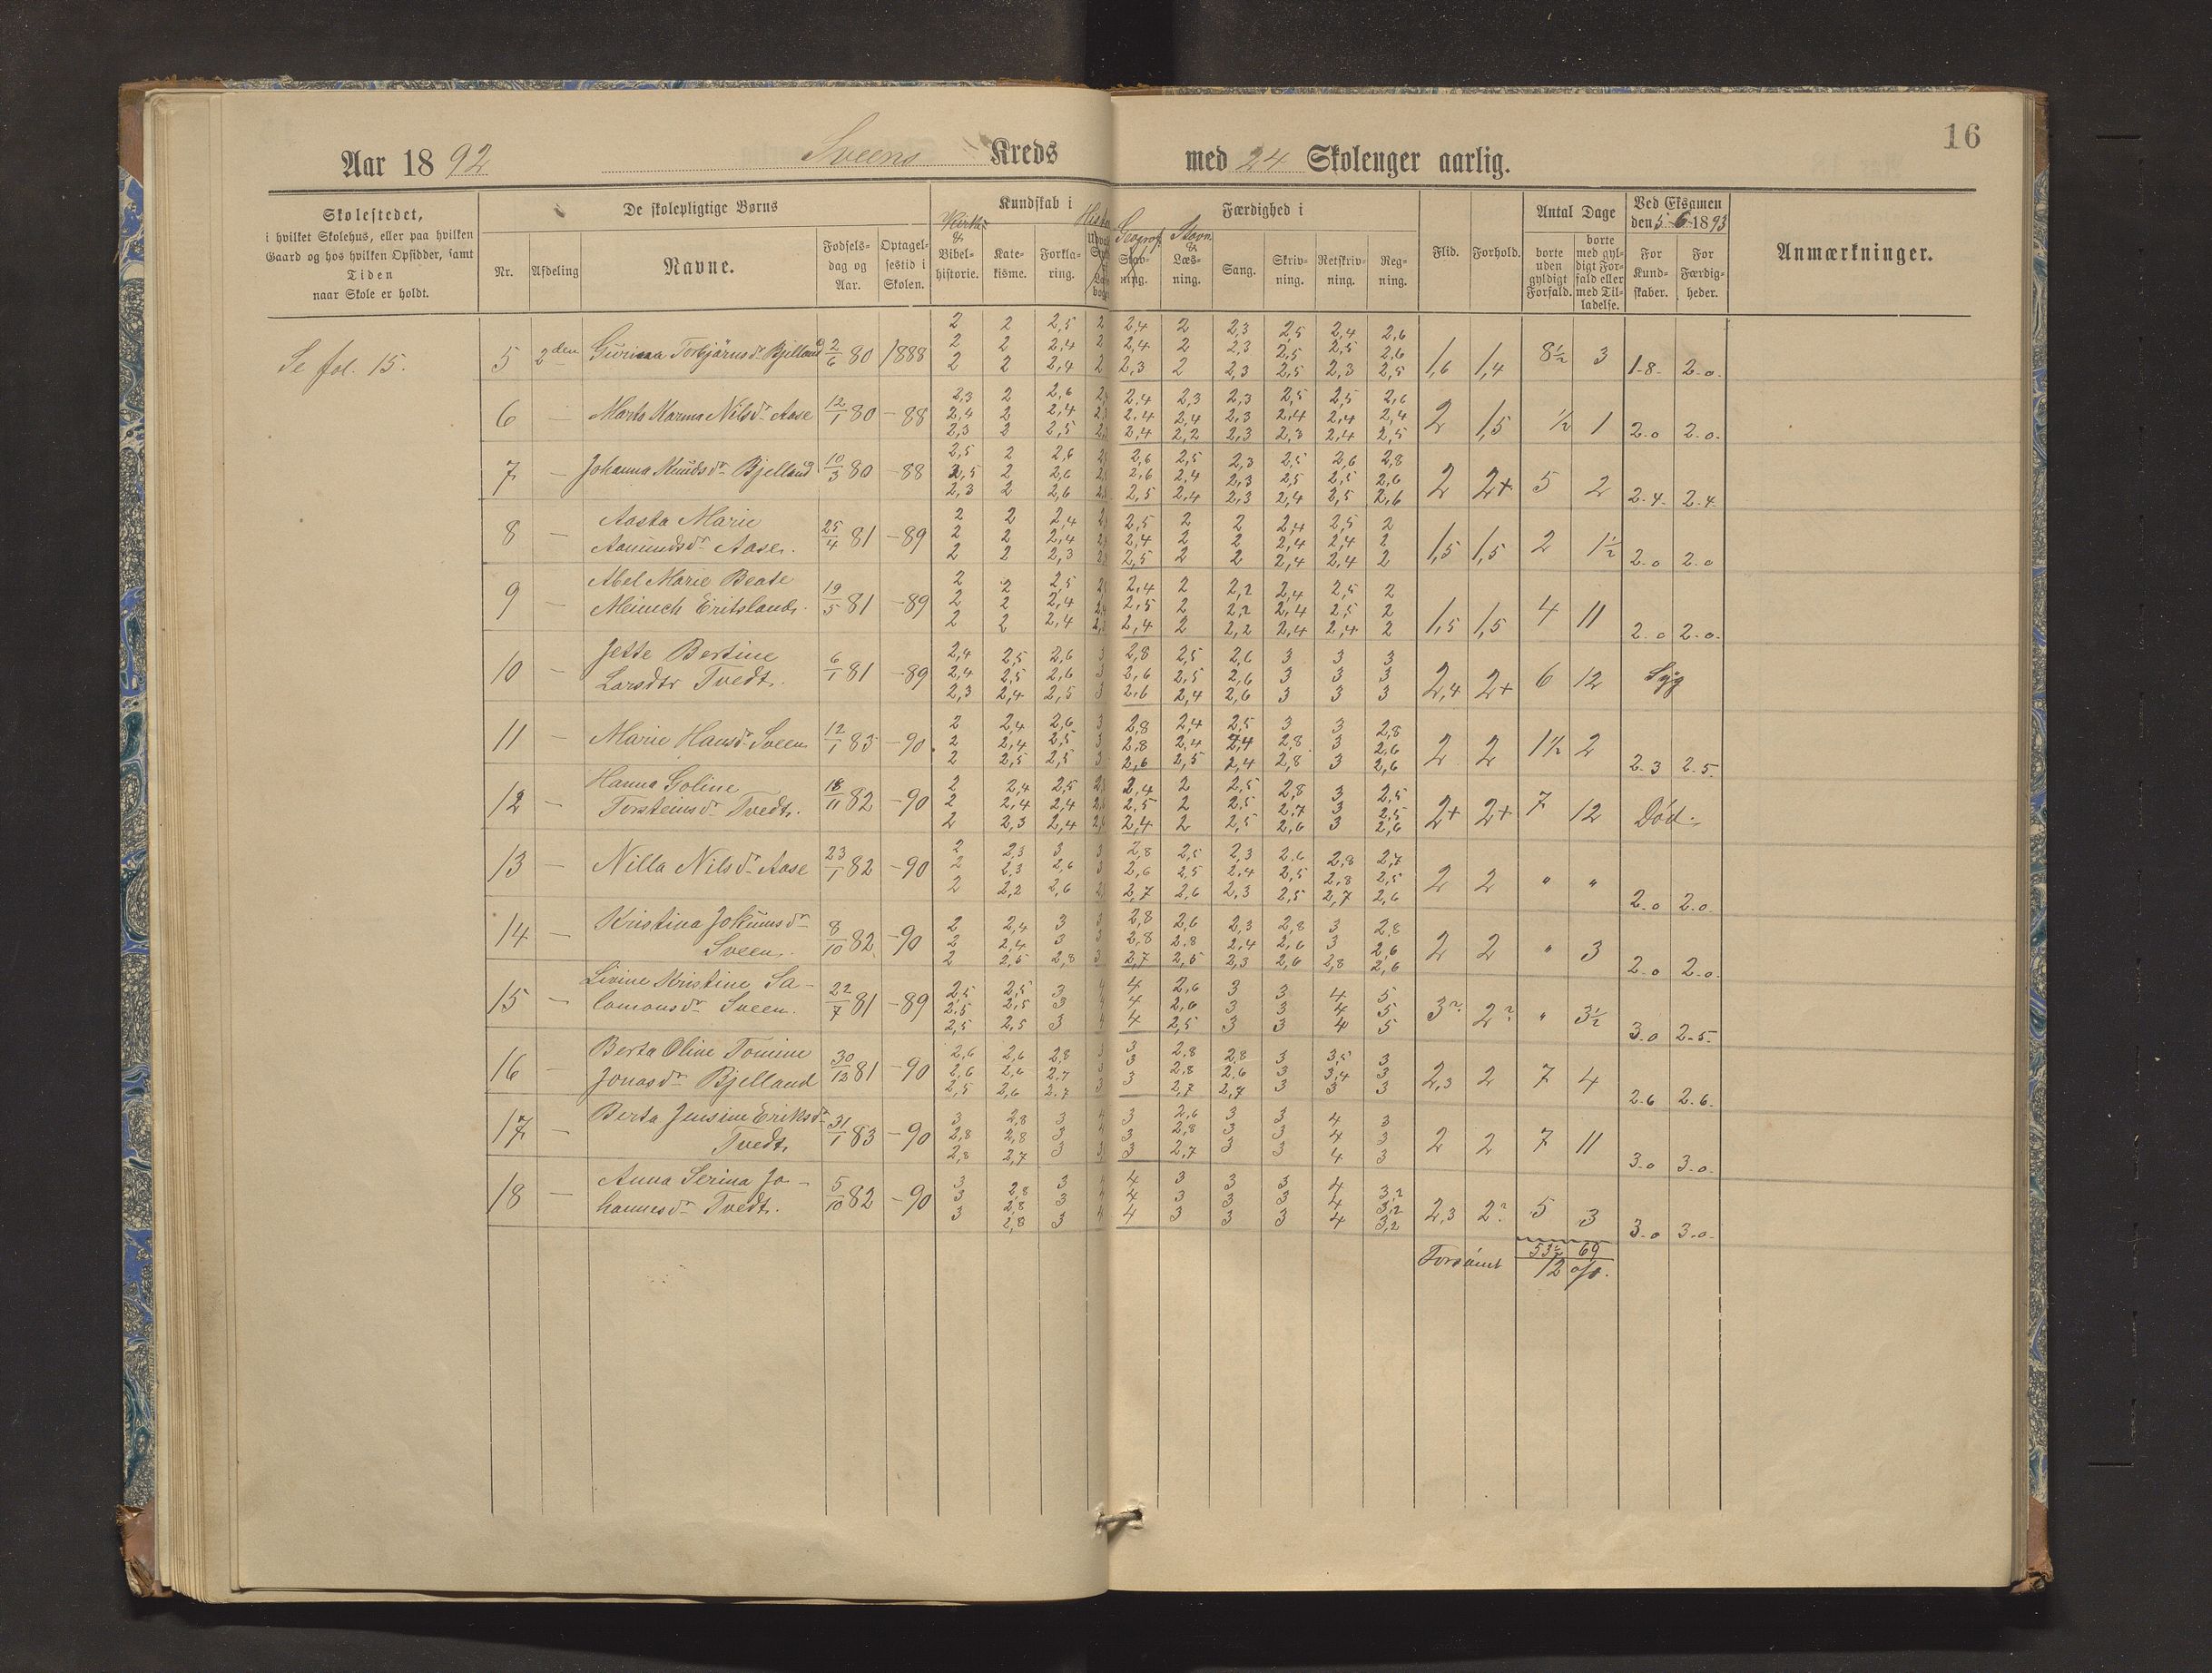 16
Aar 1892 Sveens Kreds med 24 Skolenger aarlig.
Skolestedet, i hvilket Skolehus, eller paa hvilken Gaard og hos hvilken Opsidder, samt Tiden naar Skole er holdt.
De skolepligtige Børns
Nr. Afdeling Navne. Fødselsdag og Aar. Optagelsestid i Skolen.
Kundskab i
Kirke- & Bibelhistorie. Katekisme. Forklaring.
Færdighed i
Geogrof. Stavning. Stavn. & Læsning. Sang. Skrivning. Retskrivning. Regning.
Flid. Forhold.
Antal Dage
borte uden gyldigt Forfald. borte med gyldigt Forfald eller med Tilladelse.
Ved Eksamen den 5-6-1893
For Kundskaber. For Færdigheder.
Anmærkninger.
Se fol. 15.
5 2den Gurina Torbjørnsdr Bjelland 2/6 80 1888
2 2 2,5 2 2,4 2 2,3 2,5 2,4 2,6
2 2 2,4 2 2,4 2 2,3 2,5 2,5 2,6
2 2 2,4 2 2,3 2 2,3 2,5 2,3 2,5
1,6 1,4 8½ 3 1-8- 2-0.
6 — Marta Karina Nilsdr Aase 12/1 80 -88
2,3 2 2,6 2,4 2,3 2,3 2,5 2,5 2,6
2,4 2 2,4 2,4 2,4 2,3 2,4 2,4 2,4
2,3 2 2,5 2,4 2,2 2,3 2,3 2,4 2,5
2 1,5 ½ 1 2-0 2-0.
7 — Johanna Knudsdr Bjelland 10/3 80 -88
2,5 2 2,6 2,6 2,5 2,3 2,5 2,6 2,8
2,5 2 2,6 2,6 2,4 2,3 2,5 2,5 2,6
2,3 2 2,6 2,5 2,4 2,3 2,4 2,5 2,6
2 2+ 5 2 2-4. 2-4.
8 — Aasta Marie
Aamundsdr Aase. 25/4 81 -89
2 2 2,4 2,5 2 2 2,4 2,5 2
2 2 2,4 2,4 2 2 2,4 2,4 2
2 2 2,3 2,5 2 2 2,4 2,4 2
1,5 1,5 2 1½ 2-0 2-0
9 — Abel Marie Beate
Meinich Eritsland. 19/5 81 -89
2 2 2,5 2,4 2 2,2 2,4 2,5 2
2 2 2,4 2,5 2 2,2 2,4 2,5 2
2 2 2,4 2,4 2 2,2 2,4 2,4 2
1,5 1,5 4 11 2-0 2-0.
10 — Jette Bertine
Larsdtr Tvedt. 6/1 81 -89
2,4 2,5 2,6 3 2,8 2,5 2,6 3 3 3
2,4 2,5 2,6 3 2,6 2,5 2,6 3 3 3
2,3 2,4 2,5 3 2,6 2,4 2,6 3 3 3
2,4 2+ 6 12 Syg
11 — Marie Hansdr Sveen 12/1 83 -90
2 2,4 2,6 3 2,8 2,4 2,5 3 3 2,8
2 2,4 2,5 3 2,8 2,4 2,4 2,8 3 2,6
2 2,5 2,5 3 2,6 2,5 2,4 2,8 3 2,6
2 2 1½ 2 2-3 2-5.
12 — Hanna Goline
Torsteinsdr Tvedt. 18/11 82 -90
2 2,4 2,5 2,4 2 2,5 2,8 3 2,5
2 2,4 2,4 2,5 2 2,5 2,7 3 2,5
2 2,3 2,4 2,4 2 2,5 2,6 3 2,6
2+ 2+ 7 12 Död.
13 — Nilla Nilsdr Aase 23/1 82 -90
2 2,3 3 3 2,8 2,5 2,3 2,6 2,8 2,7
2 2,3 2,6 3 2,6 2,5 2,4 2,5 2,8 2,5
2 2,2 2,6 2,7 2,6 2,3 2,5 2,7 2,6
2 2 " " 2-0 2-0
14 — Kristina Jokumsdr
Sveen. 8/10 82 -90
2 2,4 3 3 2,8 2,6 2,3 2,8 3 2,8
2 2,4 3 3 2,8 2,8 2,4 2,6 3 2,6
2 2,5 2,8 3 2,7 2,5 2,3 2,6 2,8 2,6
2 2 " 3 2-0 2-0.
15 — Livine Kristine Sa-
lomonsdr Sveen. 22/7 81 -89
2,5 2,5 3 4 4 2,6 3 3 4 5
2,5 2,5 3 4 4 2,6 3 3 4 5
2,5 2,5 3 4 4 2,5 3 3 4 5
3? 2? " 3½ 3-0 2-5.
16 — Berta Oline Tomine
Jonasdr Bjelland 30/12 81 -90
2,6 2,6 2,8 3 3 2,8 2,8 3 3,5 3
2,6 2,6 2,7 3 3 2,8 2,6 3 3,4 3
2,5 2,6 2,7 3 3 2,7 2,7 3 3 3
2,3 2 7 4 2-6 2-6.
17 — Berta Jensine Eriksdr
Tvedt. 31/1 83 -90
3 2,8 3 4 3 2,6 3 3 4 3
2,8 2,8 3 4 3 2,8 3 3 4 3
2,8 2,7 3 3 3 2,7 3 3 4 3
2 2 7 11 3-0 3-0.
18 — Anna Serina Jo-
hannesdr Tvedt. 5/10 82 -90
3 2,8 3 4 4 3 3 3 4 3,2
3 2,8 3 4 4 3 3 3 4 3,2
3 2,8 3 4 4 3 3 3 4 3,2
2,3 2? 5 3 3-0 3-0.
Forsömt 53½ 69
12 o/o.